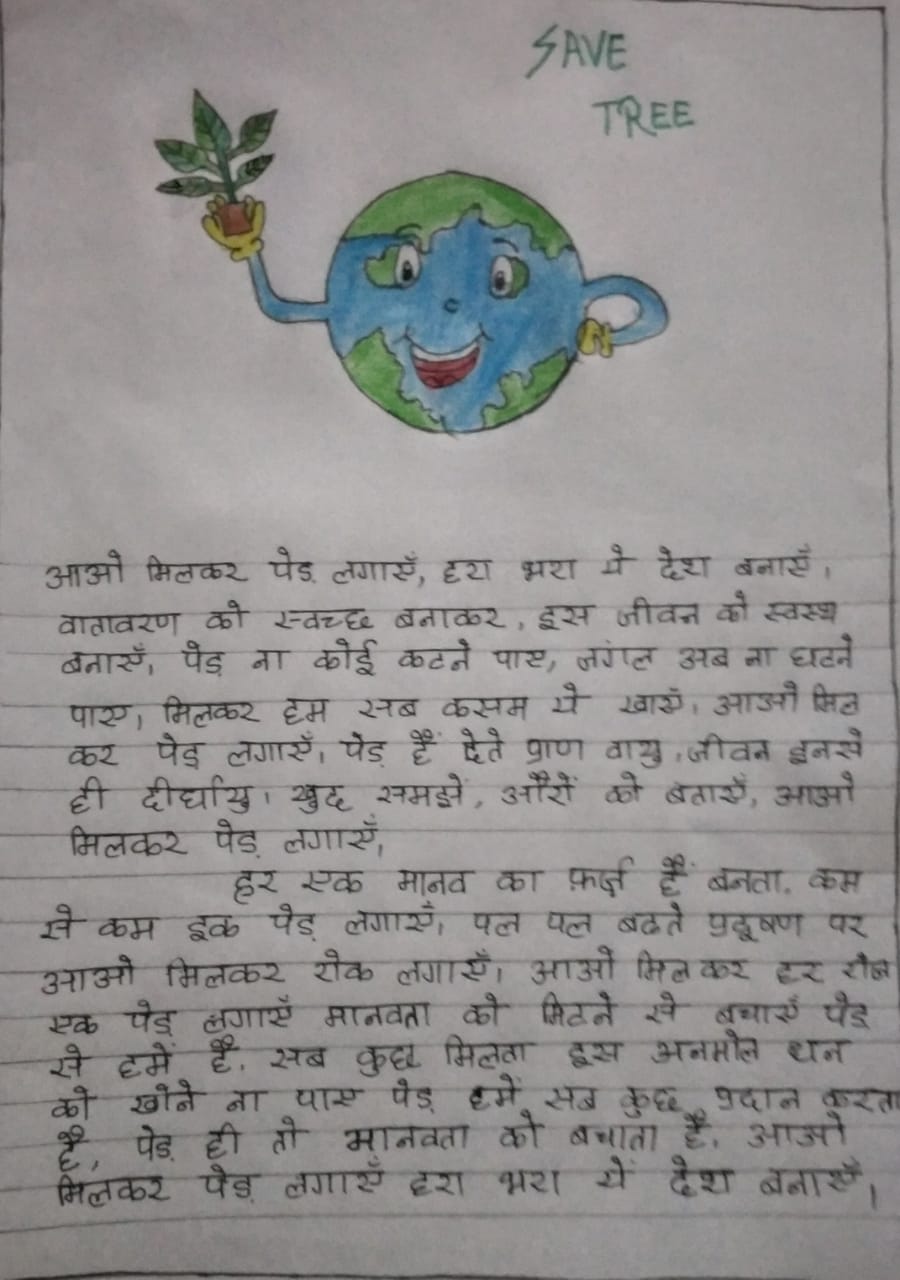 SAVE
TREE
आओ मिलकर पेड़ लगाएँ, हरा भरा ये देश बनाएँ,
वातावरण को स्वच्छ बनाकर, इस जीवन को स्वस्थ
बनाएँ, पेड़ ना कोई कटने पाए, जंगल अब ना घटने
पाए, मिलकर हम सब कसम ये खाएँ, आओ मिल
कर पेड़ लगाएँ, पेड़ हैं देते प्राण वायु, जीवन इनसे
ही दीर्घायु, खुद समझें, औरों को बताएँ, आओ
मिलकर पेड़ लगाएँ,
हर एक मानव का फ़र्ज़ हैं बनता, कम
से कम इक पेड़ लगाएँ, पल पल बढते प्रदूषण पर
आओ मिलकर रोक लगाएँ, आओ मिल कर हर रोज
एक पेड़ लगाएँ मानवता को मिटने से बचाएँ पेड़
से हमें है, सब कुछ मिलता इस अनमोल धन
को खोने ना पाए पेड़ हमें सब कुछ प्रदान करता
है, पेड़ ही तो मानवता को बचाता है, आओ
मिलकर पेड़ लगाएँ हरा भरा यें देश बनाएँ,